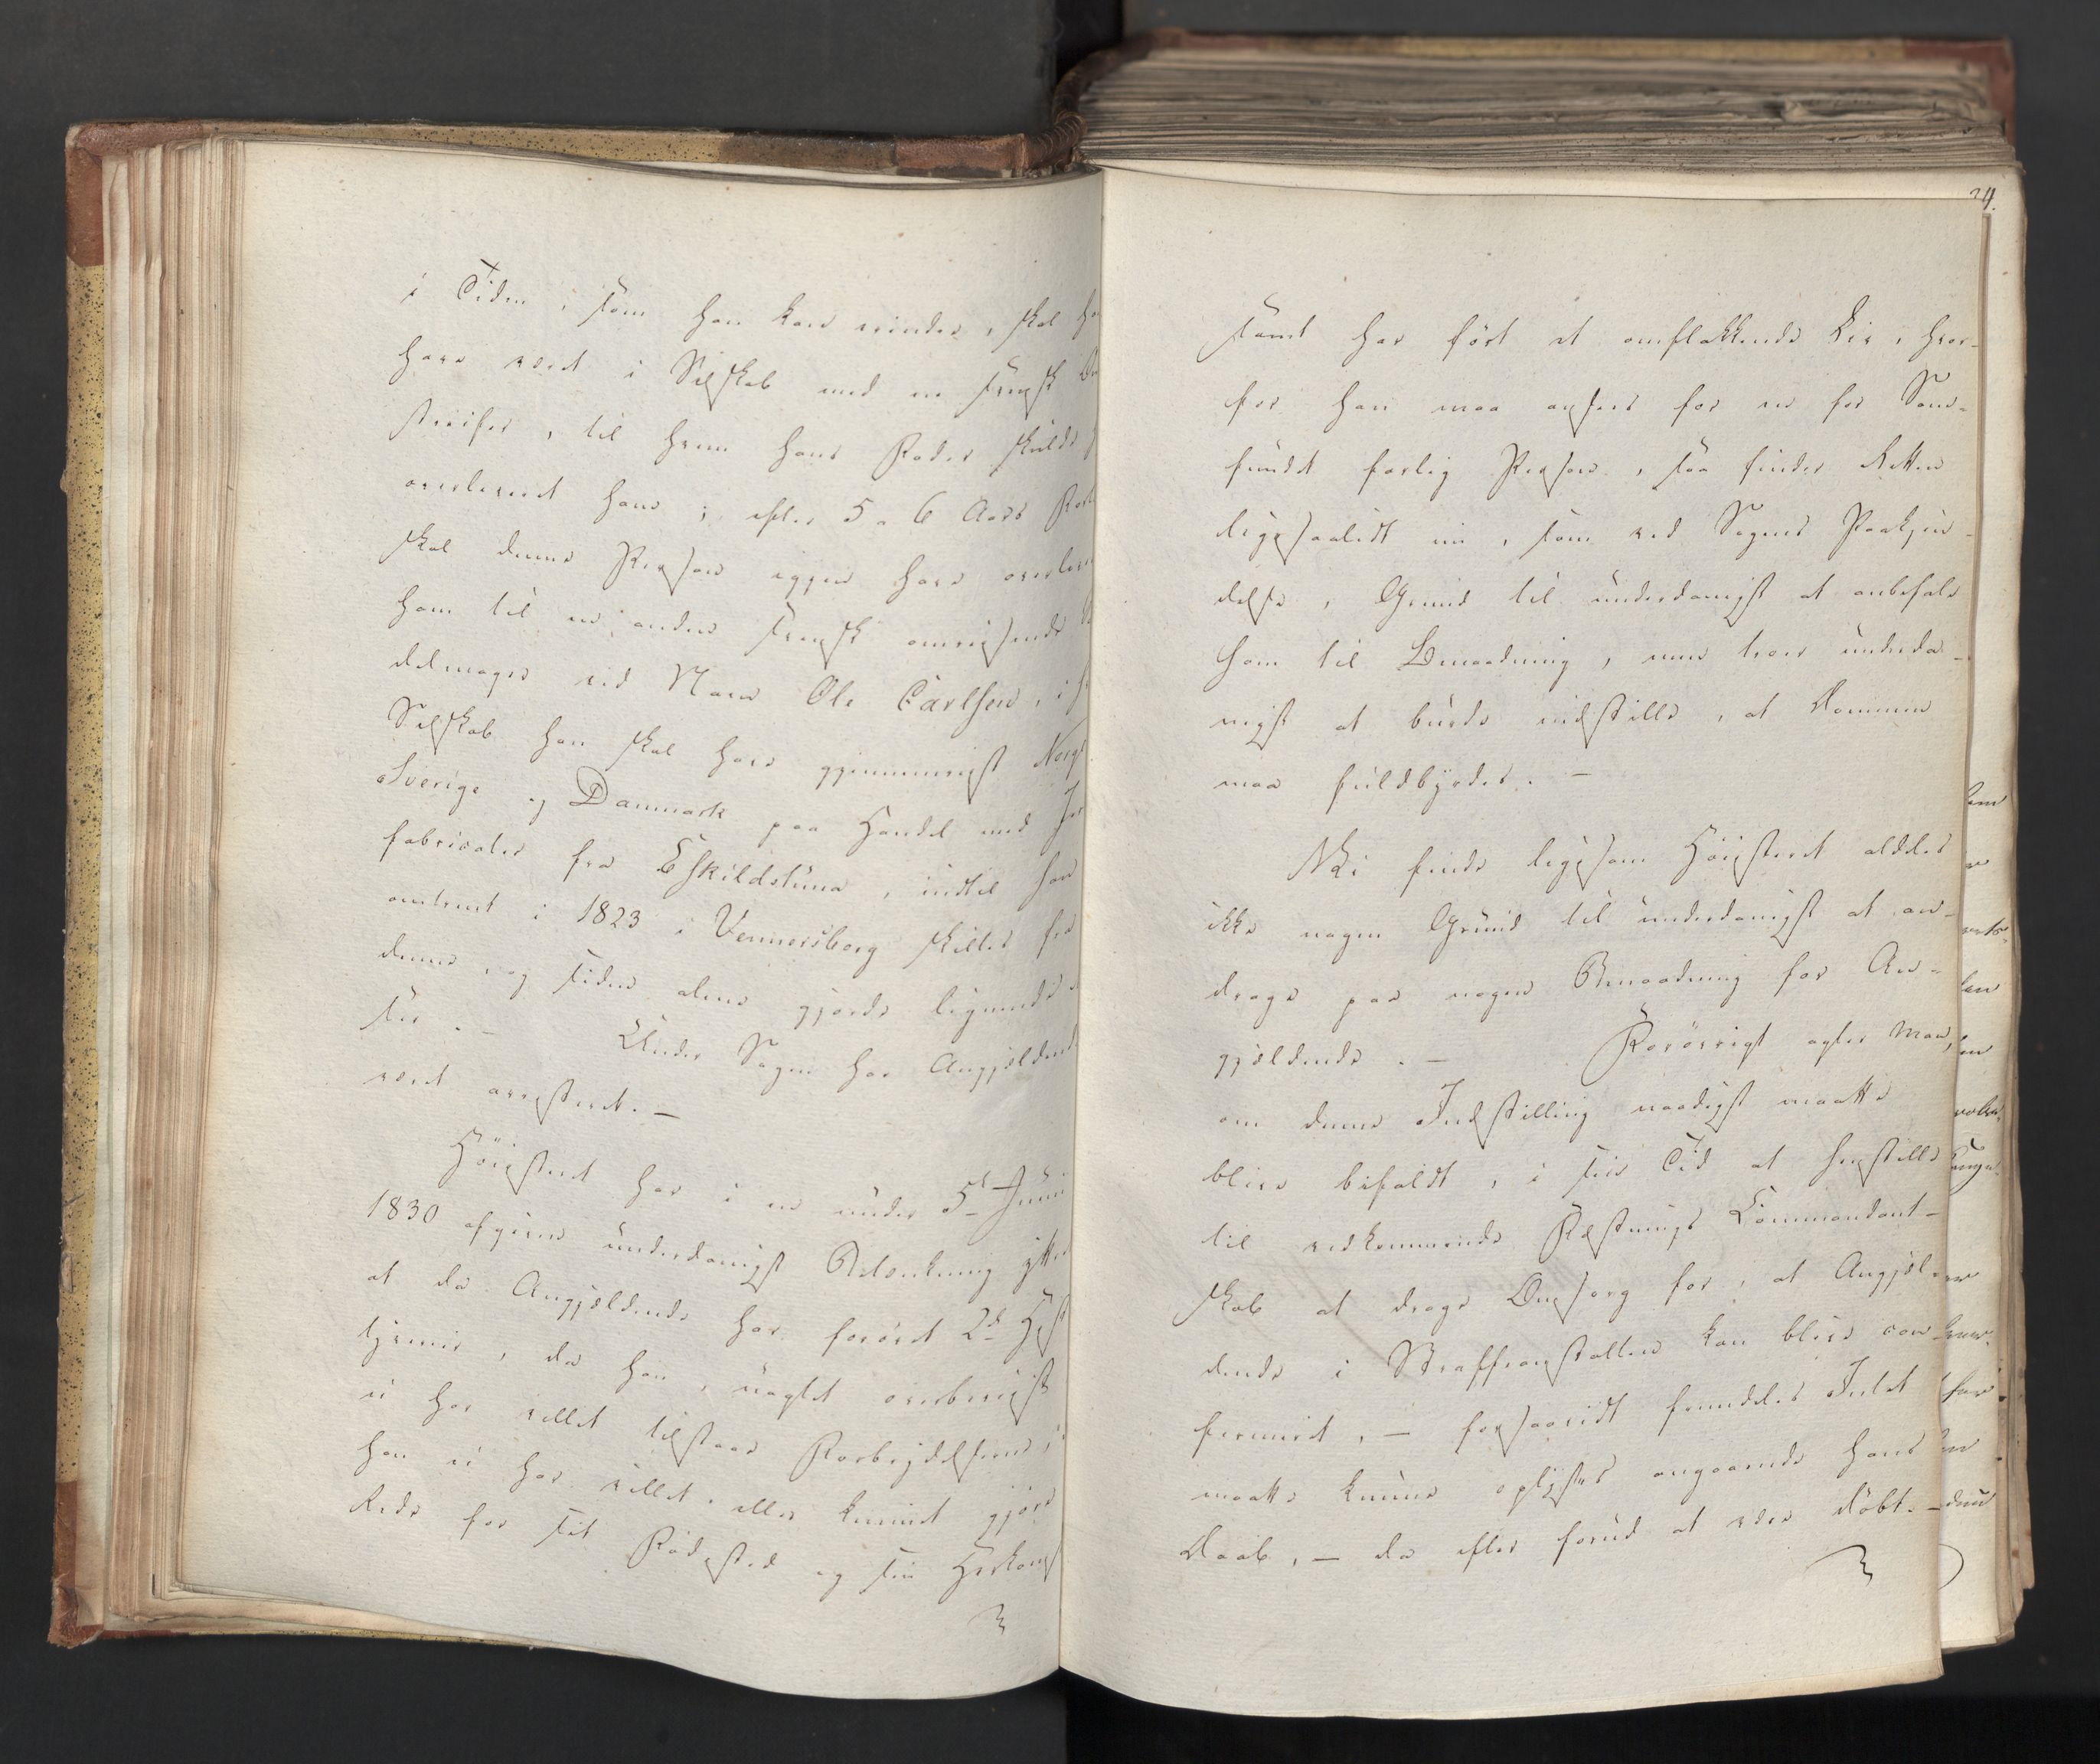 i Tiden, som han kan mindes, skal ha
have været i Selskab med en svensk
streifer, til hvem hans Fader skulde
overleveret ham; efter 5 a 6 Aars
skal denne Person igjen have overleve
ham til en anden svensk omreisende
delmager ved Navn Ole Carlsen, i
Selskab han skal have gjennemreist Norge
Sverige og Danmark paa Handel med Jer
fabricater fra Eskildstuna, indtil han
omtrent i 1823 i Vennersborg skiltes fra
denne, og siden alene gjorde lignende
ser. — Under Sagen har Angjældend
været arresteret. —
Höiesteret har i en under 5te Juni
1830 afgiven underdanigst Betænkning yttr
at da Angjældende har forövet 2de Hest
tyverier, da han, uagtet overbeviist
ei har villet tilstaae Forbrydelserne,
han ei har villet eller kunnet gjöre
Rede for sit Födested og sin Herkomst
24.
samt har fört et omflakkende Liv, hvor-
for han maa ansees for en for Sam-
fundet farlig Person, saa finder Retten
ligesaalidt nu, som ved Sagens Paakjen-
delse, Grund til underdanigst at anbefale
ham til Benaadning, men troer underda-
nigst at burde indstille, at Dommen
maa fuldbyrdes. —
Vi finde ligesom Höiesteret aldeles
ikke nogen Grund til underdanigst at an-
drage paa nogen Benaadning for An-
gjældende. — Forövrigt agter man,
om denne Indstilling naadigst maatte
blive bifaldt, i sin Tid at henstille
til vedkommende Fæstnings Commandant-
skab at drage Omsorg for, at Angjæl-
dende i Straffeanstalten kan blive con-
firmeret, — forsaavidt fremdeles Intet
maatte kunne oplyses angaaende hans
Daab, — da efter forud at være döbt. —